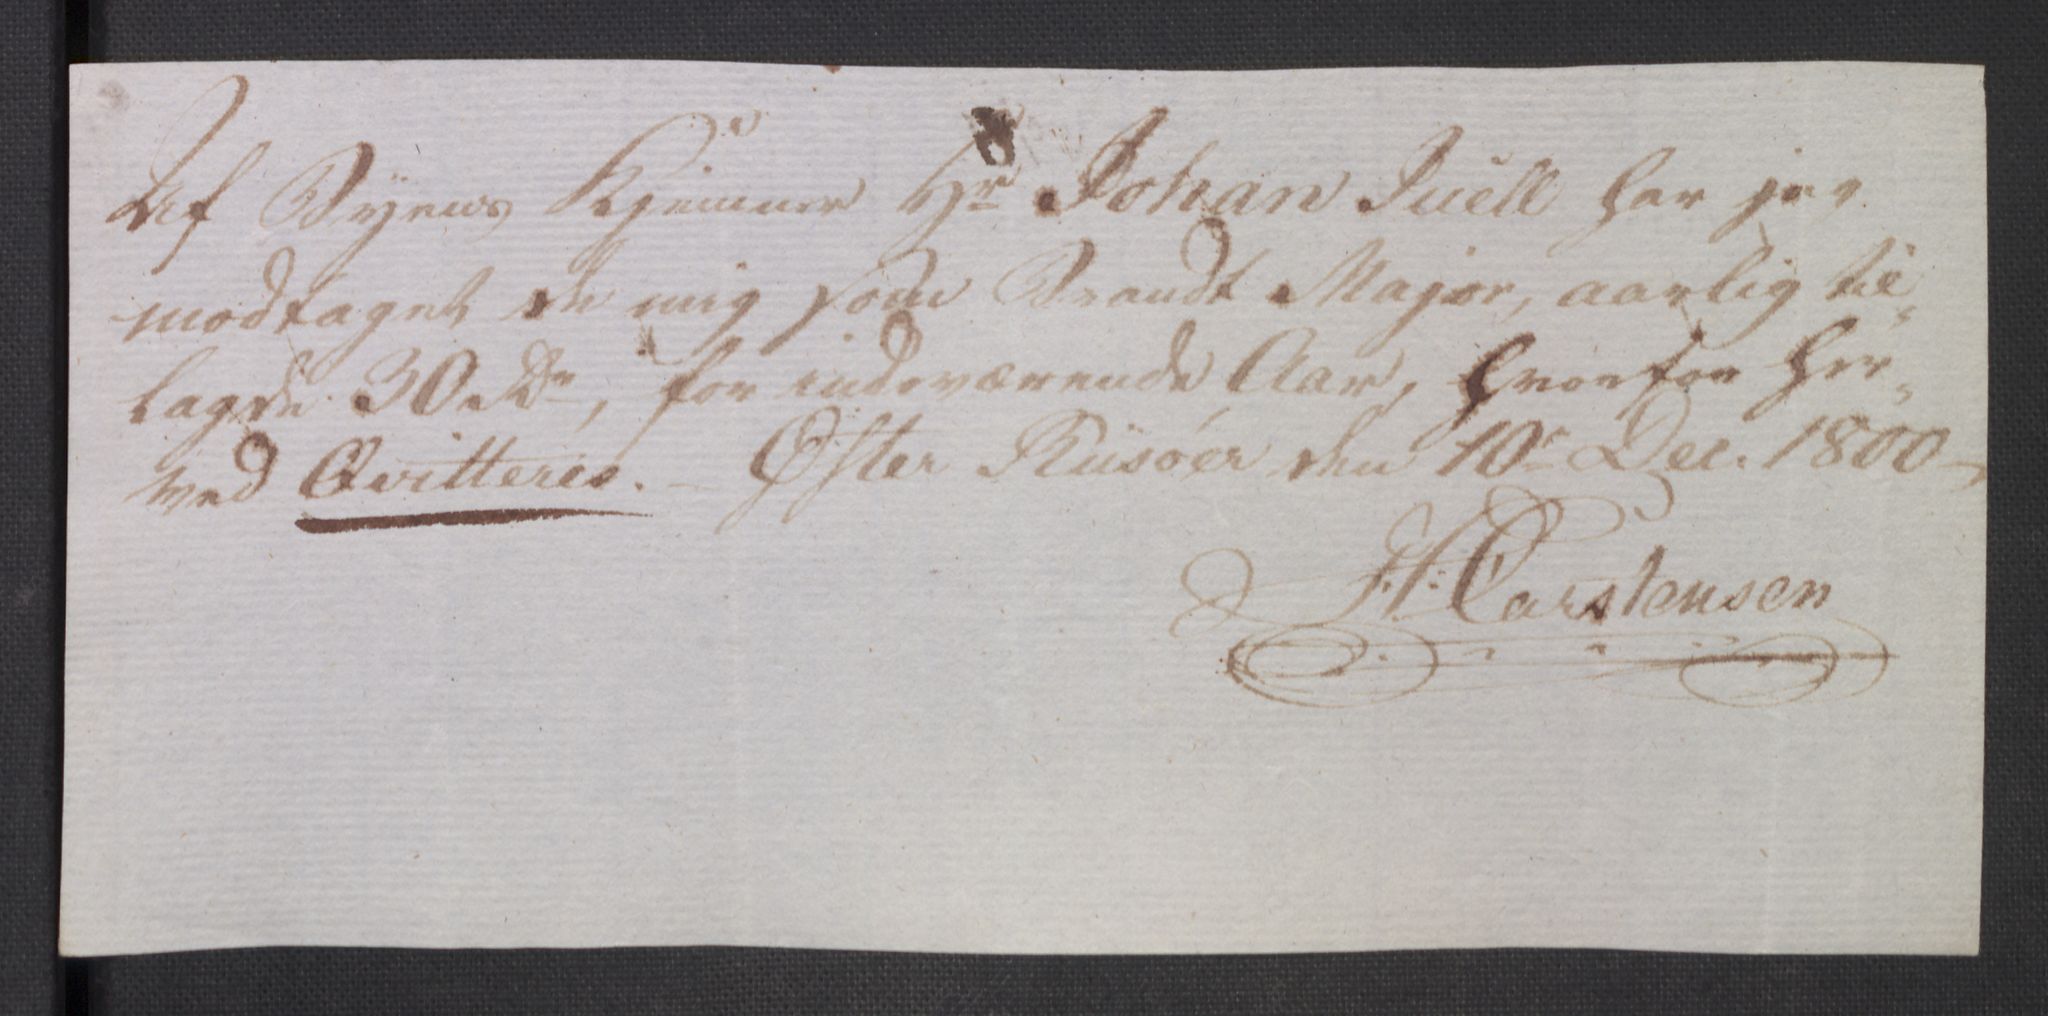 Af Byens Kjemner Hr Johan Juell har jeg
modtaget de mig som Brandt Major, aarlig til-
lagde 30 Rdr, for indeværende Aar, hvorfor her-
ved Qvitteres. – Øster Riisøer den 10de Dec. 1800
H. Carstensen